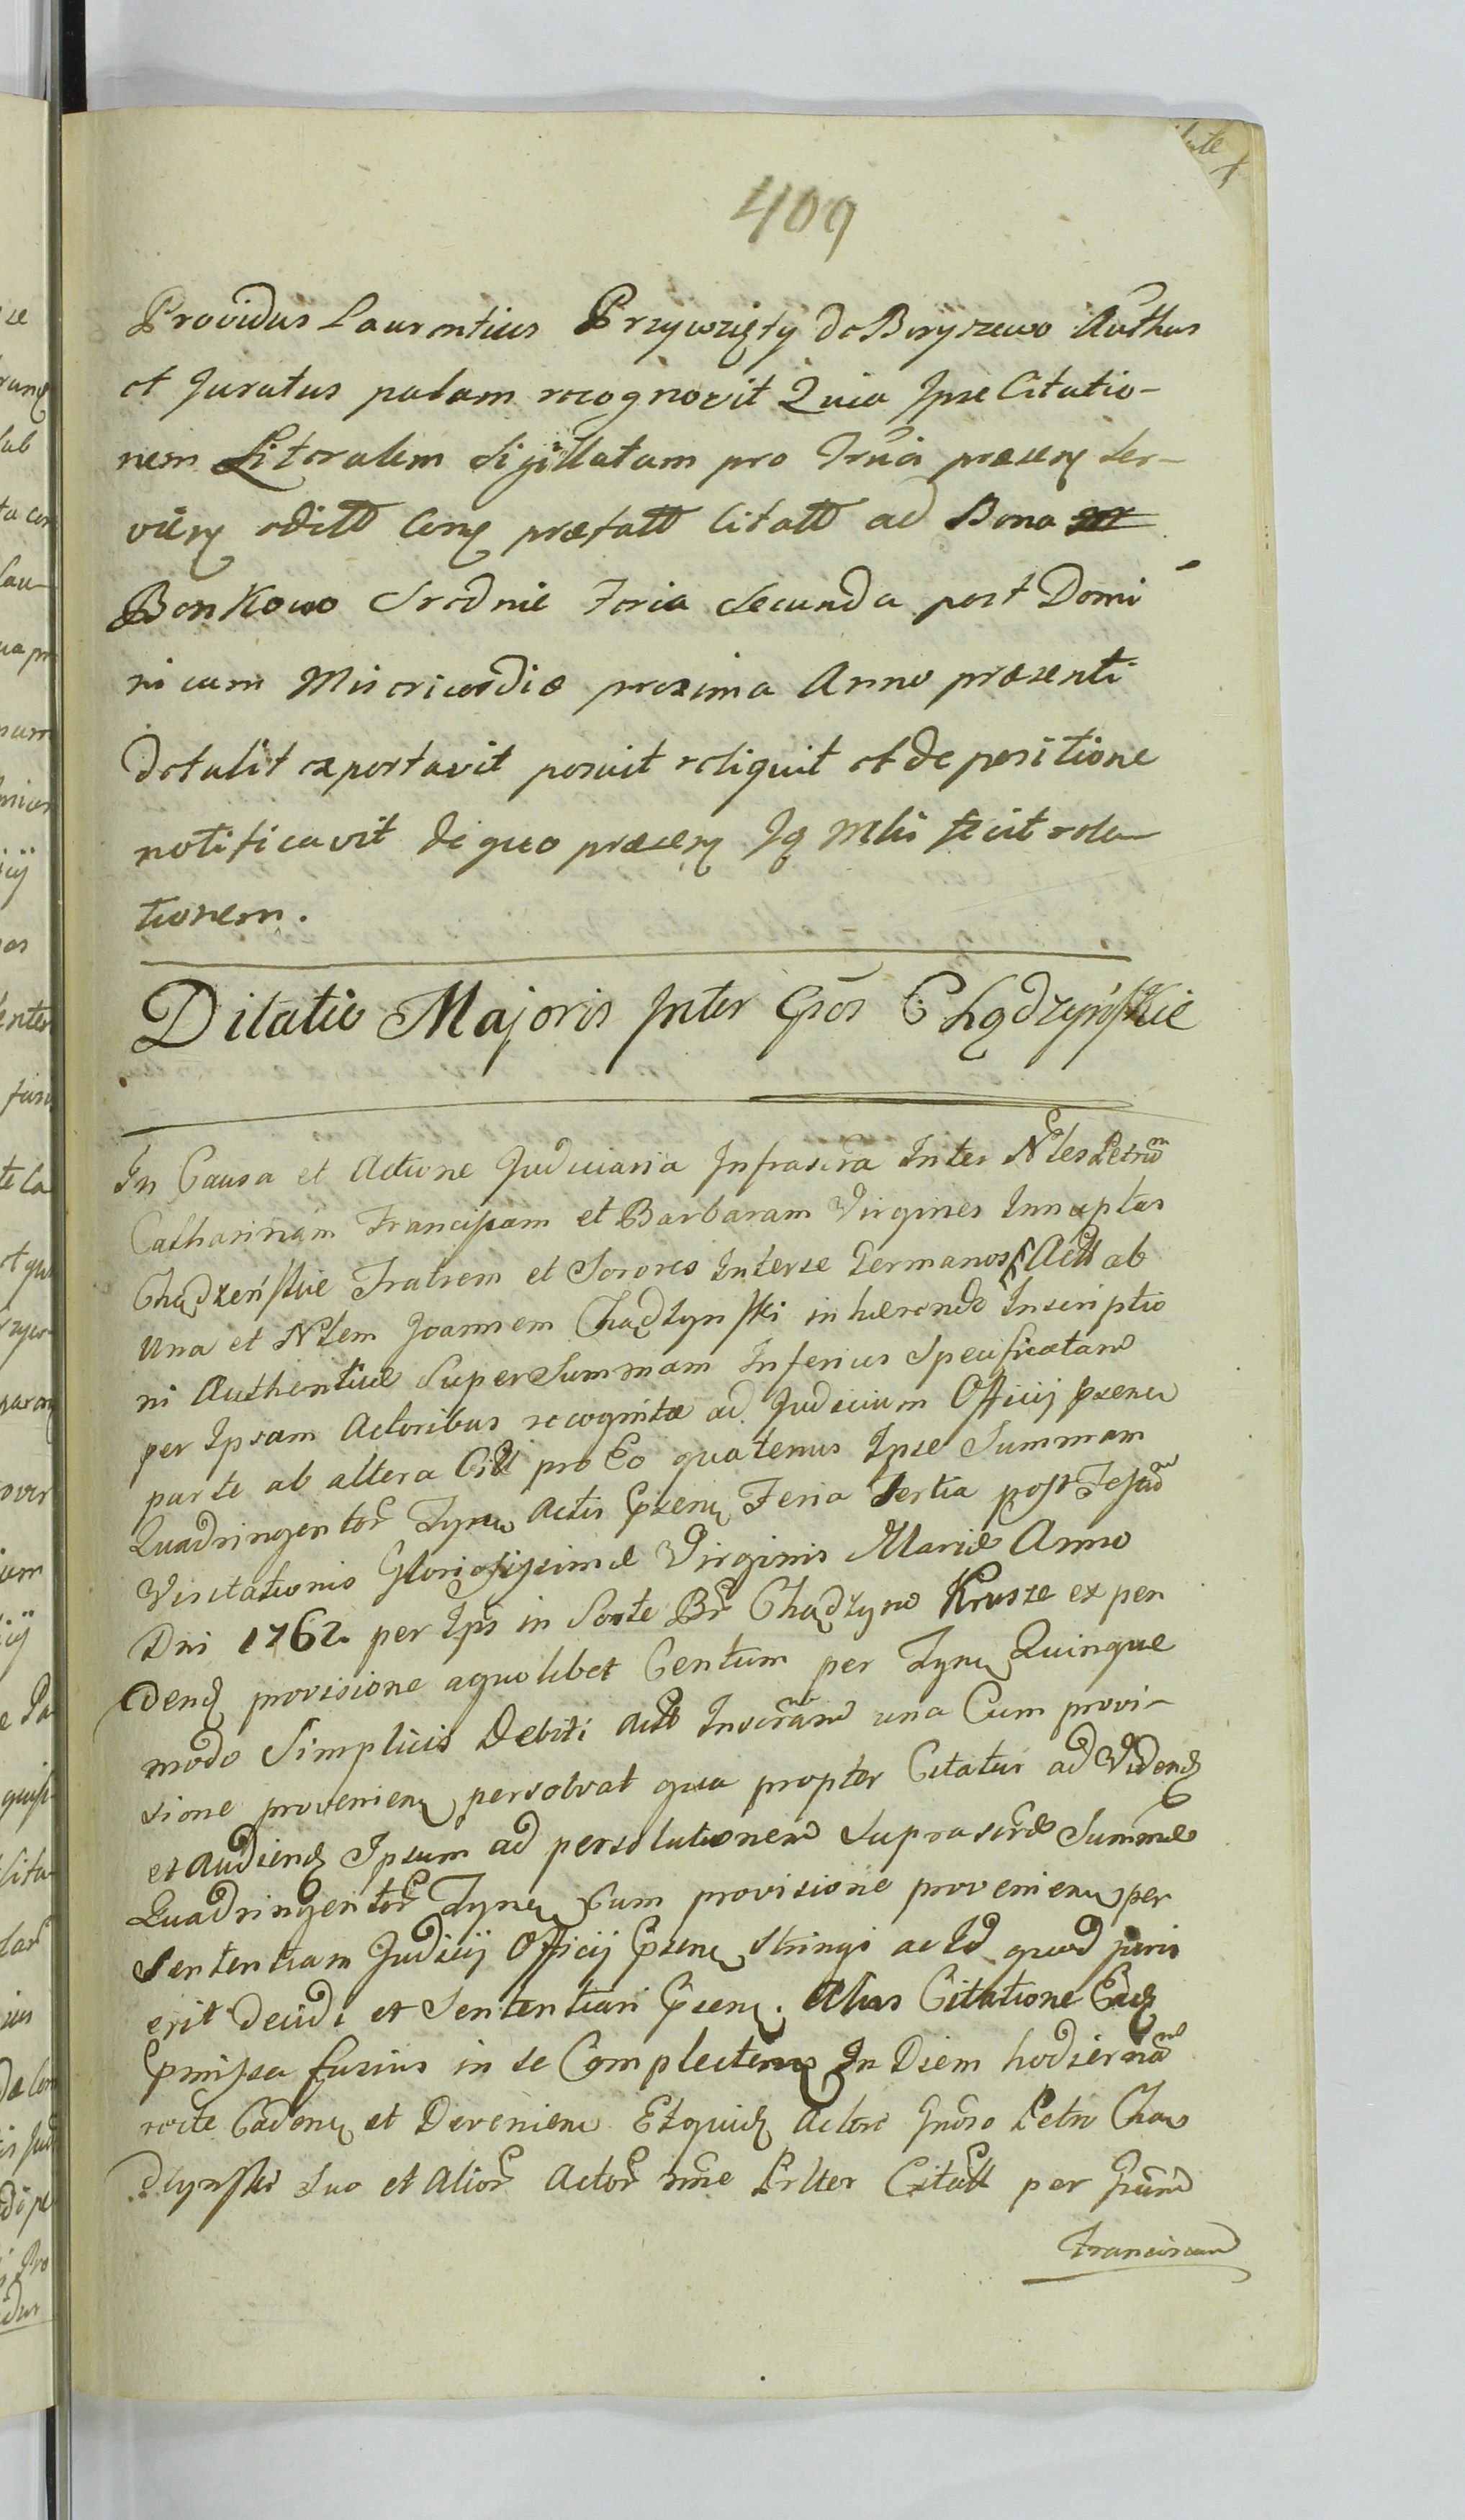 409
Providus Laurentius Przywzięty de Boryszewo Authus
et Juratus palam recognovit Quia Ipse Citatio-
nem Literalem sigillatam pro Trna praesen ser-
vien editt Cong praefatt Citatt ad Bona
Bonkowo Srednie Feria Secunda post Domi
nicam Misericordiae proxima Anno praesenti
detulit exportavit posuit reliquit et de positione
notificavit de quo praesen Iq Mlis fecit rela
tionem.
Dilatio Majoris Inter Gsos Chądzyńskie
In Causa et Actione Judiciaria Infrascra Inter Nles Petrum
Catharinam Franciscam et Barbaram Virgines Innuptas
Chądzeńskie Fratrem et Sorores Interse Germanos Actt ab
Una et Nlem Joannem Chądzynski inhaerendo Inscriptio
ni Authenticae Super Summam Inferius Specificatam
per Ipsam Actoribus recognitae ad Judicium Officij praesen
parte ab altera Citt pro Eo quatenus Ipse Summam
Quadringentor Tynu Actis praesen Feria Tertia post Festum
Visitationis Gloriosissimae Virginis Mariae Anno
Dni 1762 per Ips in Sorte Br Chądzyno Krusze expen
dend provisione a quolibet Centum per Tynu Quinque
modo Simplicis Debiti Actt Inscram una Cum provi-
sione provenien persolvat qua propter Citatur ad Vidend
et Audiend Ipsum ad persolutionem suprascrae Summae
Quadringentor Tynu Cum provisione provenien per
Sententiam Judicij Officij praesen stringi ac Id quod juris
erit Decidi et Sententiari praesen. Alias Citatione Eacq
praemissa fusius in se Complecten In Diem hodiernam
recte Caden et Devenien Et quid Actore Gnoso Petro Chą
dzynski suo et Alior Actor nne Prlter Citatt per Gnum
Franciscum